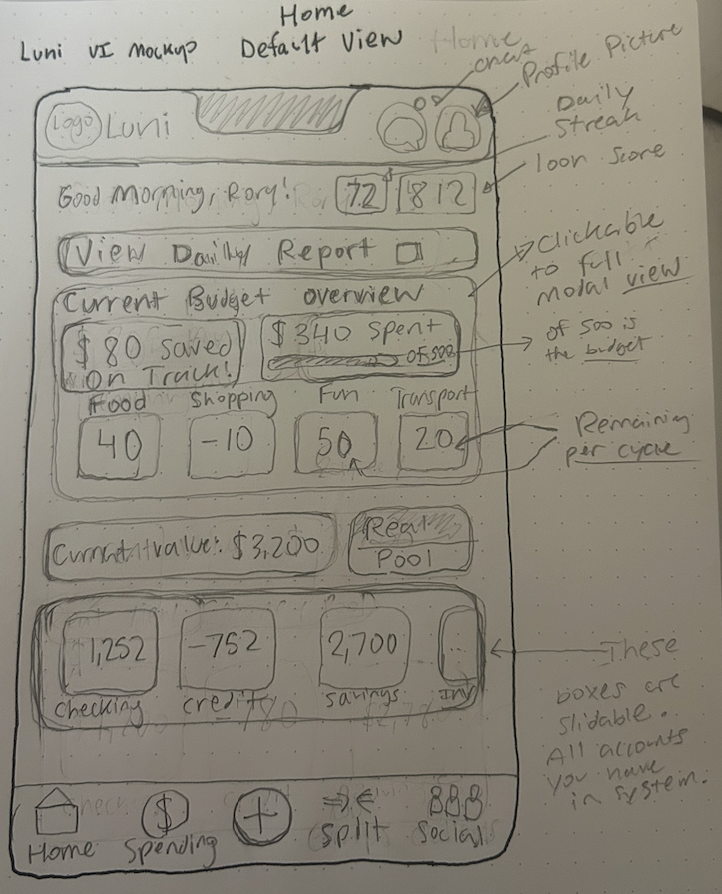 Home
Luni UI Mockup Default View Home
chat
Profile Picture
Daily
Streak
loon score
Logo Luni
Good Morning, Rory! 72 812
View Daily Report
Clickable
to full
modal view
Current Budget overview
$80 saved
On Track!
$340 spent
of 500
of 500 is
the budget
Food Shopping Fun Transport
40 -10 50 20
Remaining
per cycle
Current value: $3,200
Real
Pool
1,252 -752 2,700 ...
checking credit savings Inv
These
boxes are
slidable.
All accounts
you have
in system.
Home Spending Split Social